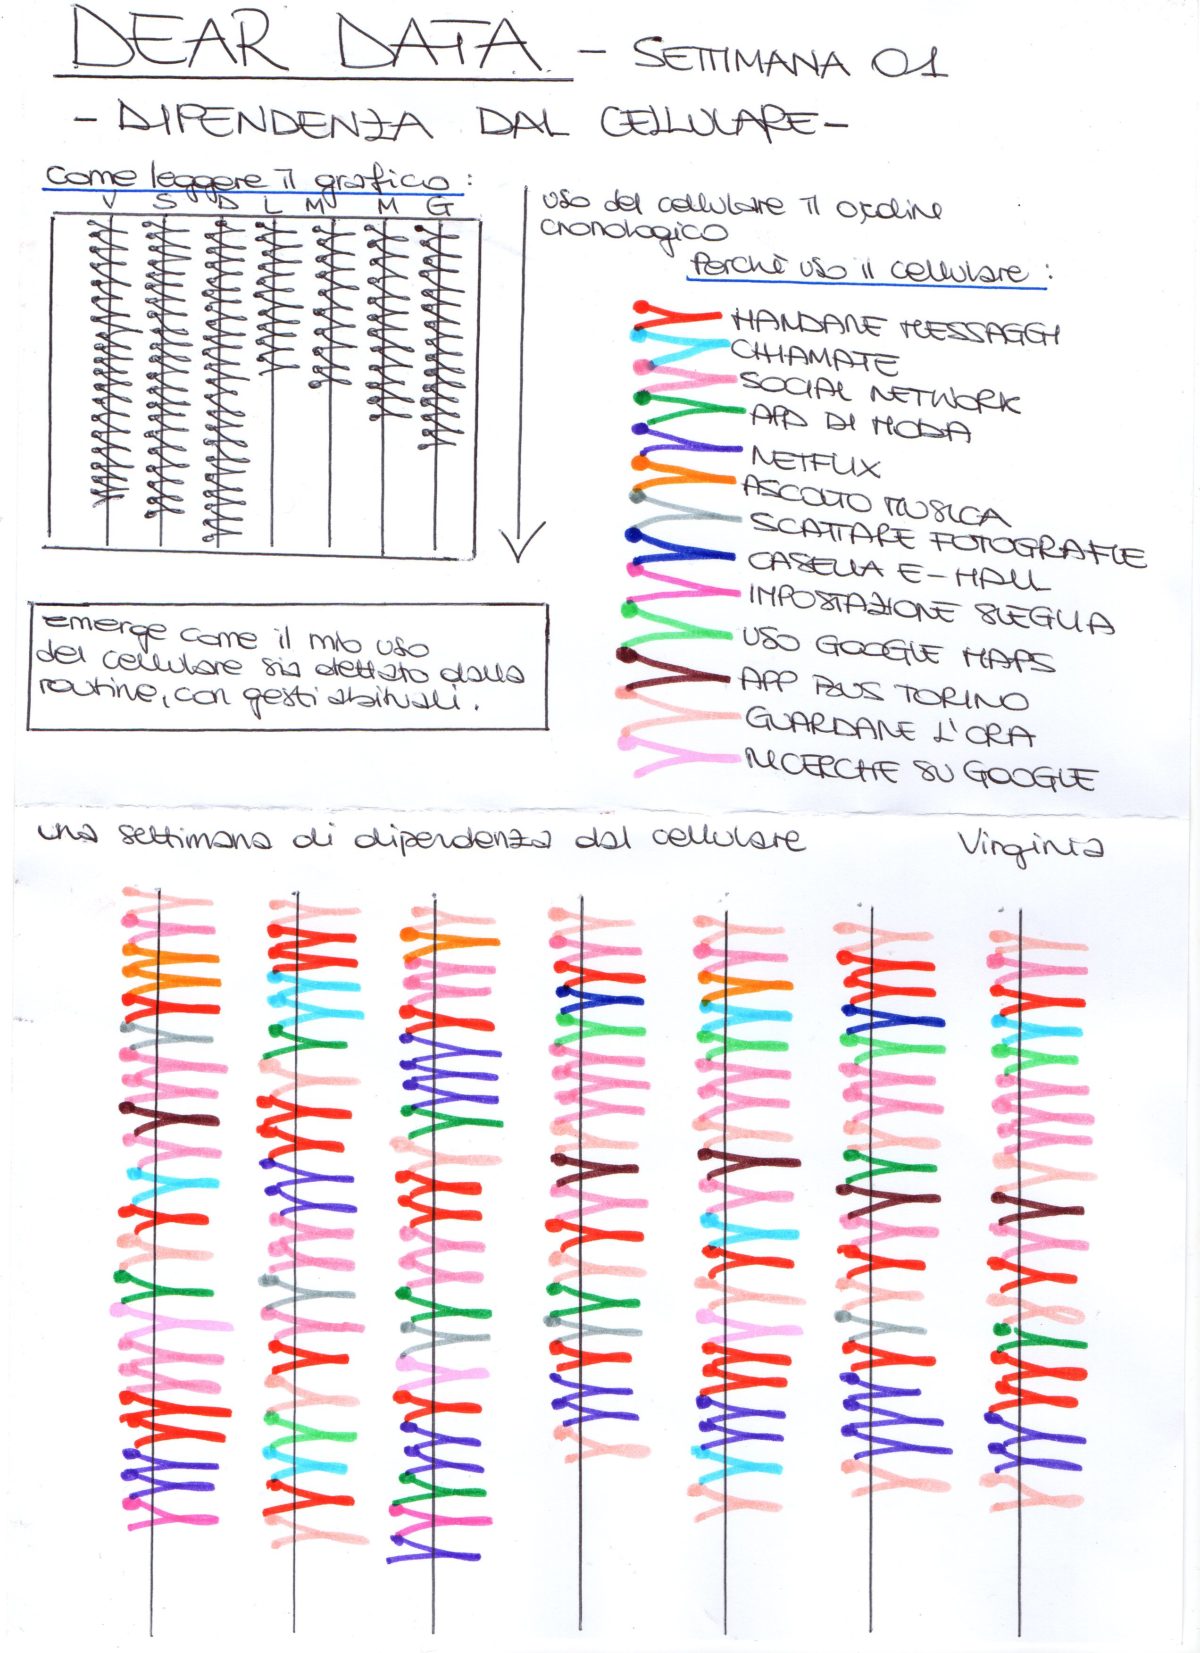 DEAR DATA - SETTIMANA 01
- DIPENDENZA DAL CELLULARE -
come leggere il grafico:
V S D L M M G
uso del cellulare il ordine
cronologico
Perchè uso il cellulare:
MANDARE MESSAGGI
CHIAMATE
SOCIAL NETWORK
APP DI MODA
NETFLIX
ASCOLTO MUSICA
SCATTARE FOTOGRAFIE
CASELLA E-MAIL
IMPOSTAZIONE SVEGLIA
USO GOOGLE MAPS
APP BUS TORINO
GUARDARE L'ORA
RICERCHE SU GOOGLE
emerge come il mio uso
del cellulare sia dettato dalla
routine, con gesti abituali.
una settimana di dipendenza dal cellulare
Virginia